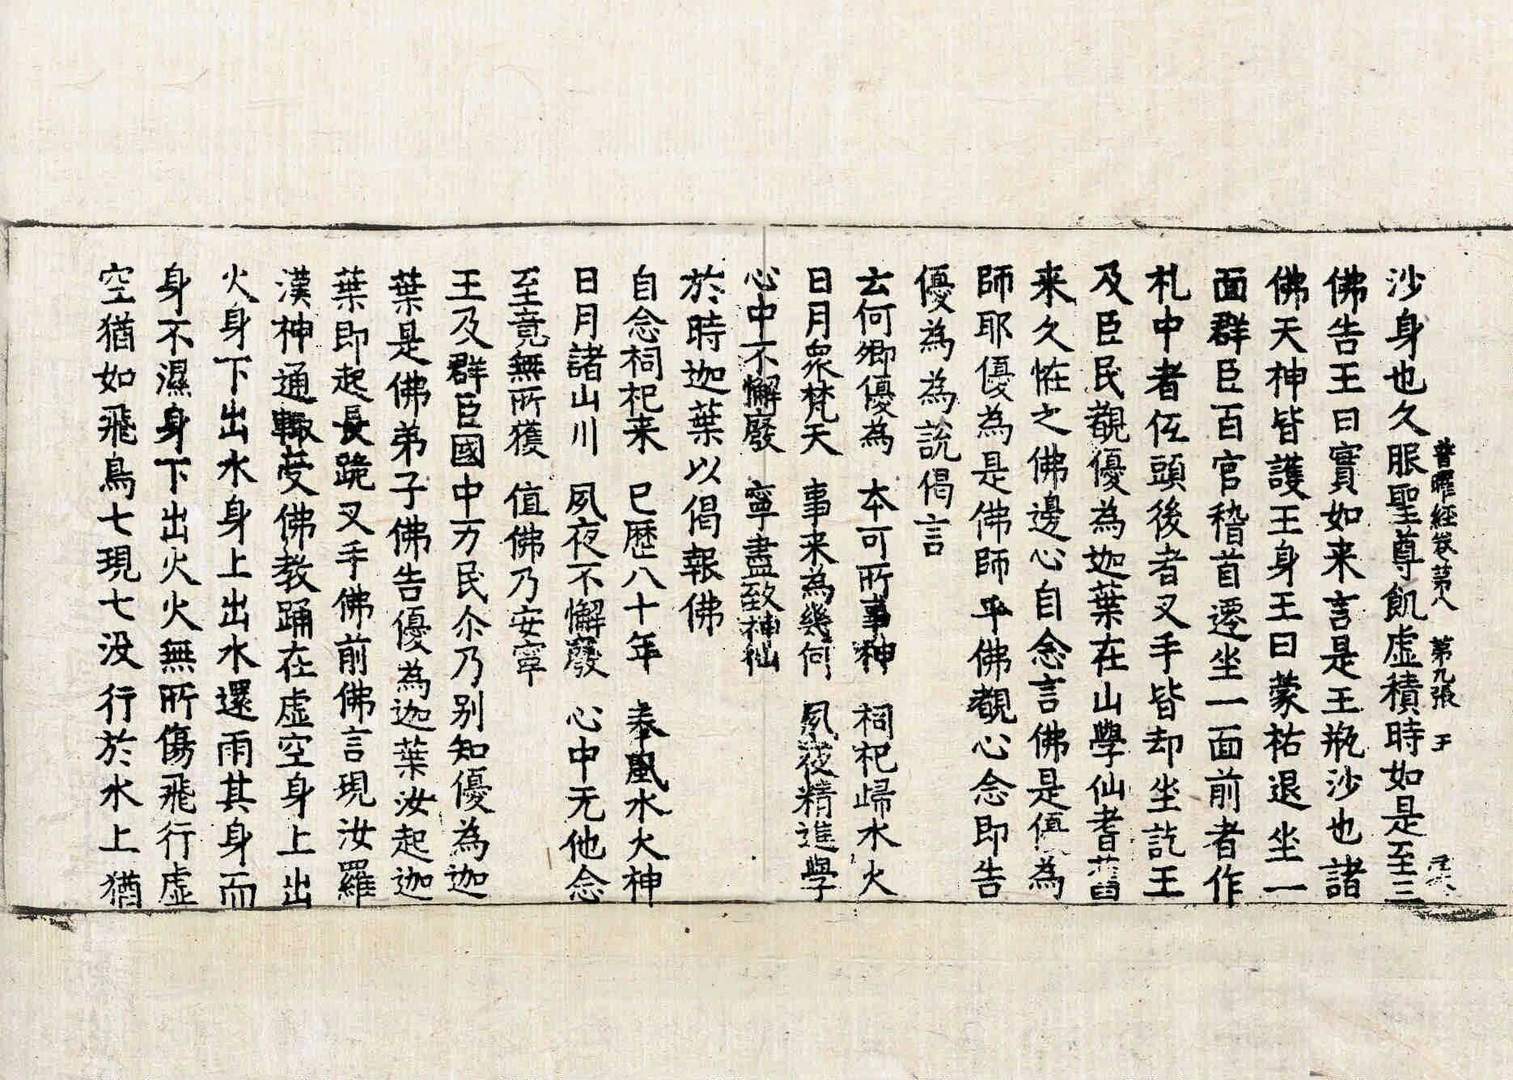 普曜經卷第八 第九張 王
沙身也久服聖尊飢虚積時如是至三
佛告王曰實如来言是王瓶沙也諸
佛天神皆護王身王曰蒙祐退坐一
面群臣百官稽首遷坐一面前者作
礼中者伍頭後者叉手皆却坐訖王
及臣民覩優為迦葉在山學仙耆舊
来久恠之佛邊心自念言佛是值為
師耶優為是佛師乎佛覩心念即告
優為為說偈言
云何卿優為 本可所事神 祠祀歸水火
日月衆梵天 事来為幾何 夙夜精進學
心中不懈廢 寧盡致神仙
於時迦葉以偈報佛
自念祠祀来 已歷八十年 奉風水火神
日月諸山川 夙夜不懈廢 心中无他念
至竟無所獲 值佛乃安寧
王及群臣國中万民尒乃别知優為迦
葉是佛弟子佛告優為迦葉汝起迦
葉即起長跪叉手佛前佛言現汝羅
漢神通輙受佛教踊在虚空身上出
火身下出水身上出水還雨其身而
身不濕身下出火火無所傷飛行虚
空猶如飛鳥七現七没行於水上猶